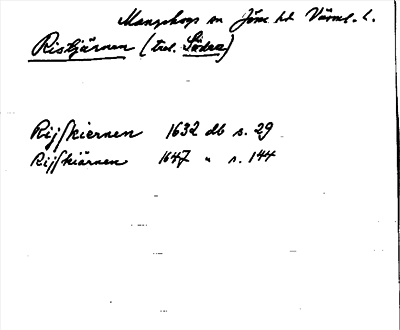 Mangskogs sn Jösse hd Värml. l.
Ristjärnen (tul. Södra)
Rijſkiernen 1632 db s. 29
Rijſkiärnen 1647 " s. 144